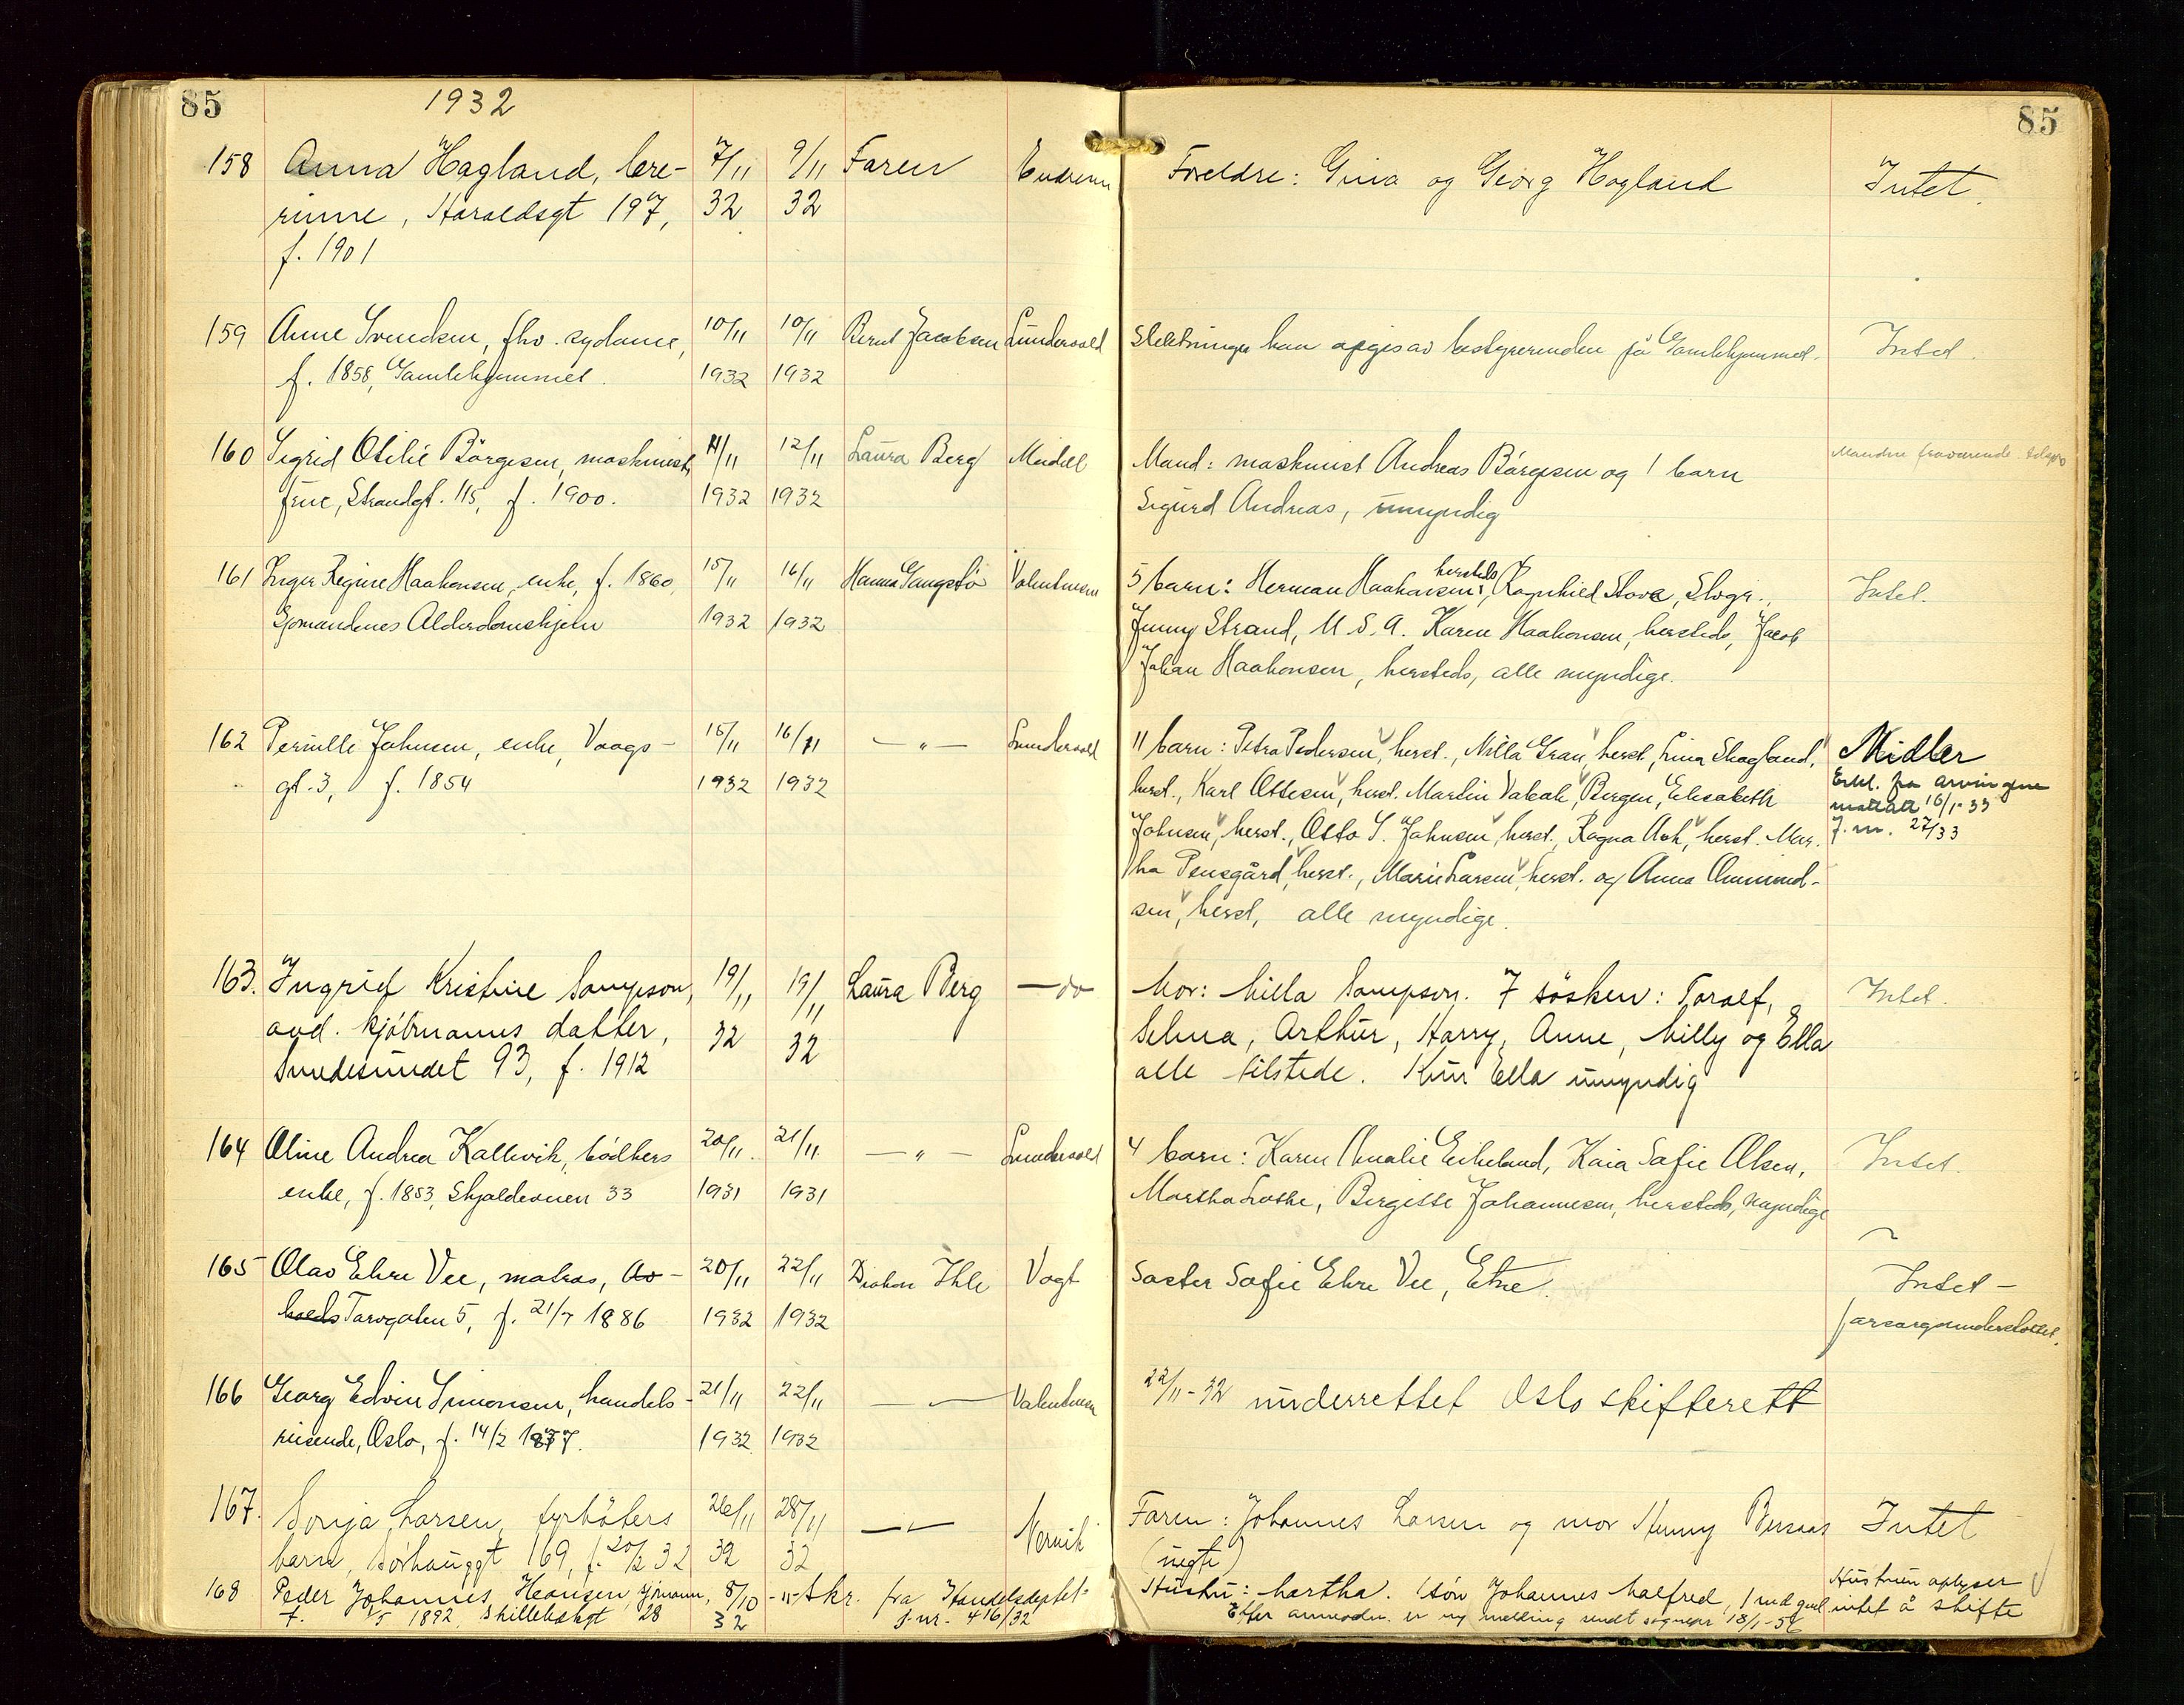 85
1932
85
158 Anna Hagland, lære- 7/11 9/11 Faren Endresen Foreldre: Gina og Georg Hagland Intet.
rinne, Haraldsgt 197, 32 32
f. 1901
159 Anne Svendsen, fhv. sydame, 10/11 10/11 Bernt Jacobsen Lundervold Slektninger kan opgis av bestyrerinden på Gamlehjemmet. Intet.
f. 1858, Gamlehjemmet. 1932 1932
160 Sigrid Otilie Börgesen, maskinist 11/11 12/11 Laura Berg Meidell Mand: maskinist Andreas Börgesen og 1 barn Mandne fraværende
frue, Strandgt. 115, f. 1900. 1932 1932 Sigurd Andreas, umyndig
161 Inger Regine Haakonsen, enke, f. 1860, 15/11 16/11 Hanna Gangstö Valentinsen 5 barn: Herman Haakonsen, hersteds, Ragnhild Stova, Intet.
Sjömandenes Alderdomshjem 1932 1932 Jenny Strand, U.S.A. Karen Haakonsen, hersteds, Jacob
Johan Haakonsen, hersteds, alle myndige.
162 Pernille Johnsen, enke, Vaags- 15/11 16/11 — " — Lundervold 11 barn: Petra Pedersen, herst., Nilla Grau, herst, Lina Skogland, Midler
gt. 3, f. 1854 1932 1932 herst., Karl Ottesen, herst. Martin Vakak, Bergen, Elisabeth Erkl. fra arvingene
mottatt 16/1-33
Johnsen, herst., Otto S. Johnsen, herst., Ragna Ask, herst. Mar- J.nr. 27/33
tha Pensgård, herst., Marie Larsen, herst. og Anna Ommund-
sen, herst, alle myndige.
163. Ingrid Kristine Sampson, 19/11 19/11 Laura Berg — do Mor: Milla Sampson. 7 sösken: Toralf, Intet.
avd. kjöbmanns datter, 32 32 Selma, Arthur, Harry, Anne, Milly og Ella
Smedesundet 93, f. 1912 alle tilstede. Kun Ella umyndig
164 Oline Andrea Kallevik, bödkers 20/11. 21/11. — " — Lundervold 4 barn: Karen Amalie Eikeland, Kaia Sofie Olsen, Intet.
enke, f. 1853, Skjoldavn 33 1931 1931 Martha Lothe, Bergitte Johannesen, hersteds, myndige
165 Olav Ekre Vee, matros, Av- 20/11 22/11 Diakon Ihle Vogt Söster Sofie Ekre Vee, Etne. Intet —
holds Torvgaten 5, f. 21/7 1886 1932 1932 forsorgsunderstöttet.
166 Georg Edvin Simonsen, handels- 21/11 22/11 — " — Valentinsen 22/11-32 underrettet Oslo skifterett
reisende, Oslo, f. 14/2 1877. 1932 1932
167. Sonja Larsen, fyrböters 26/11 28/11 — " — Nervik Faren: Johannes Larsen og mor Henny Intet
barn, Sörhauggt 169, f. 20/2 32 32 32 (uegte)
168 Peder Johannes Hansen, sjömann, 8/10 - skr. fra Handelsdeptet Hustru: Martha. Sön Johannes Malfred, Hustruen oplyser
f. /5 1892, Skillebekgt 28 32 j.nr. 416/32 intet å skifte
Efter anmodn. er ny melding sendt sognepr 18/1-56